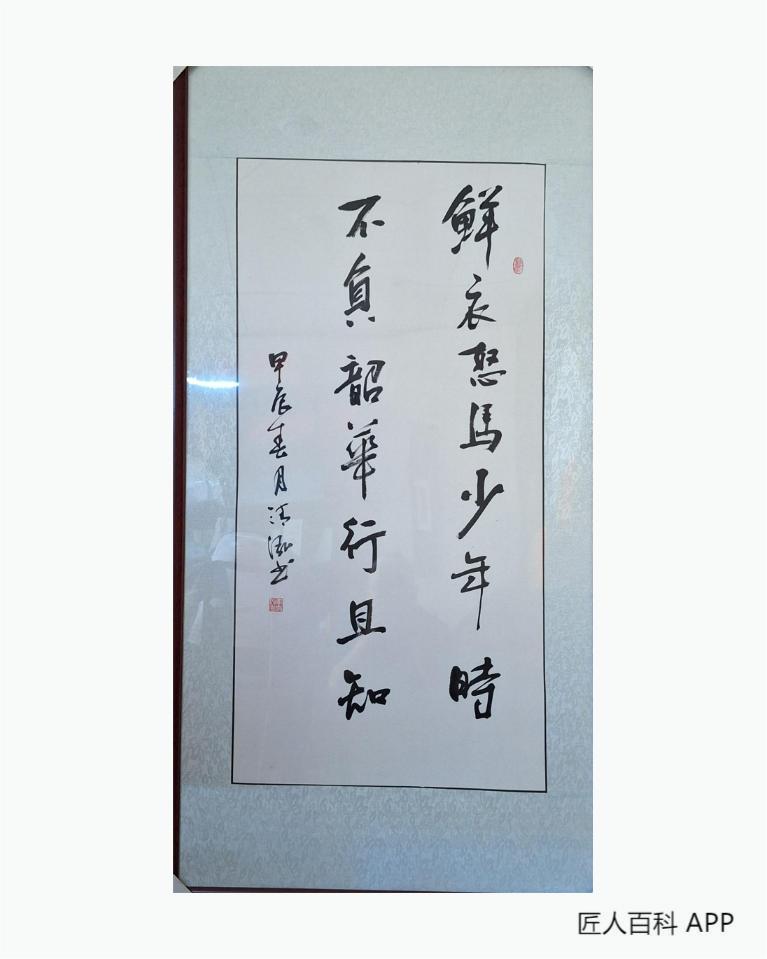 鮮衣怒馬少年時
不負韶華行且知
甲辰春月清泓书
匠人百科 APP